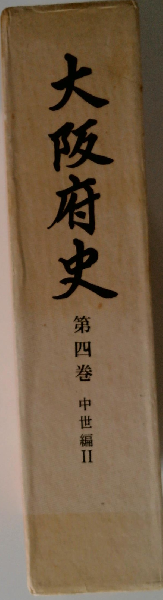 大阪府史
第四巻 中世編II